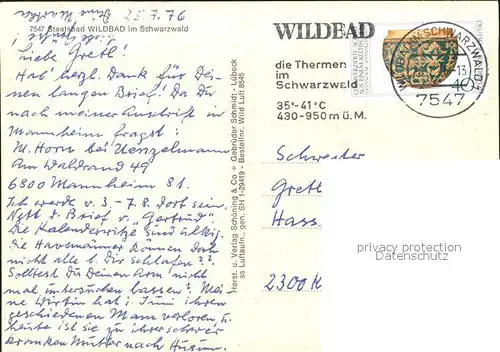 25.7.76
7547 Staatsbad WILDBAD im Schwarzwald
Liebe Gretl!
Hab' herzl. Dank für Dei-
nen langen Brief! Da Du
nach meiner Anschrift in
Mannheim fragst:
M. Horn bei Henzelmann
Am Waldrand 49
6800 Mannheim 81.
Ich werde v. 3. - 7.8. dort sein.
Nett d. Brief v. „Gertrud".
Die Kalenderwitze sind ulkig.
Die können doch
nicht alle b. Dir schlafen??
Solltest Du Deinen Arm nicht
mal untersuchen lassen? Mei-
ne Wirtin hat i. Juni ihren
geschiedenen Mann verloren, u.
heute ist sie zu ihrer schwer
kranken Mutter nach Husum.
Herst. u. Verlag Schöning & Co + Gebrüder Schmidt - Lübeck
ss Luftaufn., gen. SH 1-29419 - Bestellnr. Wild Luft 8545
WILDBAD
die Thermen
im
Schwarzwald
35°-41°C
430-950 m ü.M.
WILDBAD IM SCHWARZWALD
-13
7547
40
Schwester
Gretl
Hass
2300 K
privacy protection
Datenschutz